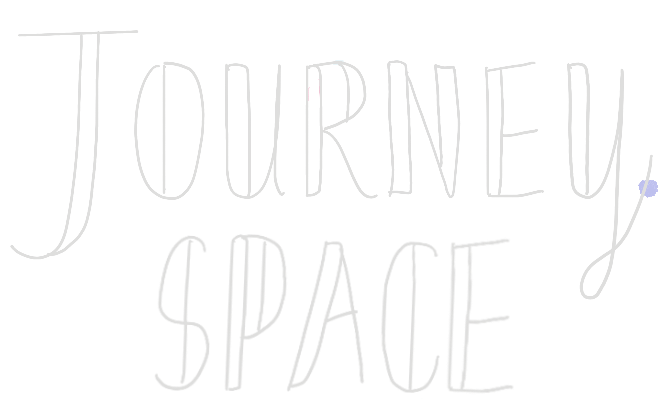 JOURNEY
SPACE